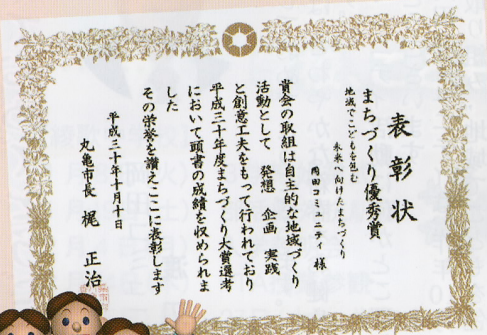 表彰状
まちづくり優秀賞
地域でこどもを包む
未来へ向けたまちづくり
岡田コミュニティ 様
貴会の取組は自主的な地域づくり
活動として 発想 企画 実践
と創意工夫をもって行われており
平成三十年度まちづくり大賞選考
において頭書の成績を収められま
した
その栄誉を讃えここに表彰します
平成三十年十月十日
丸亀市長 梶 正治